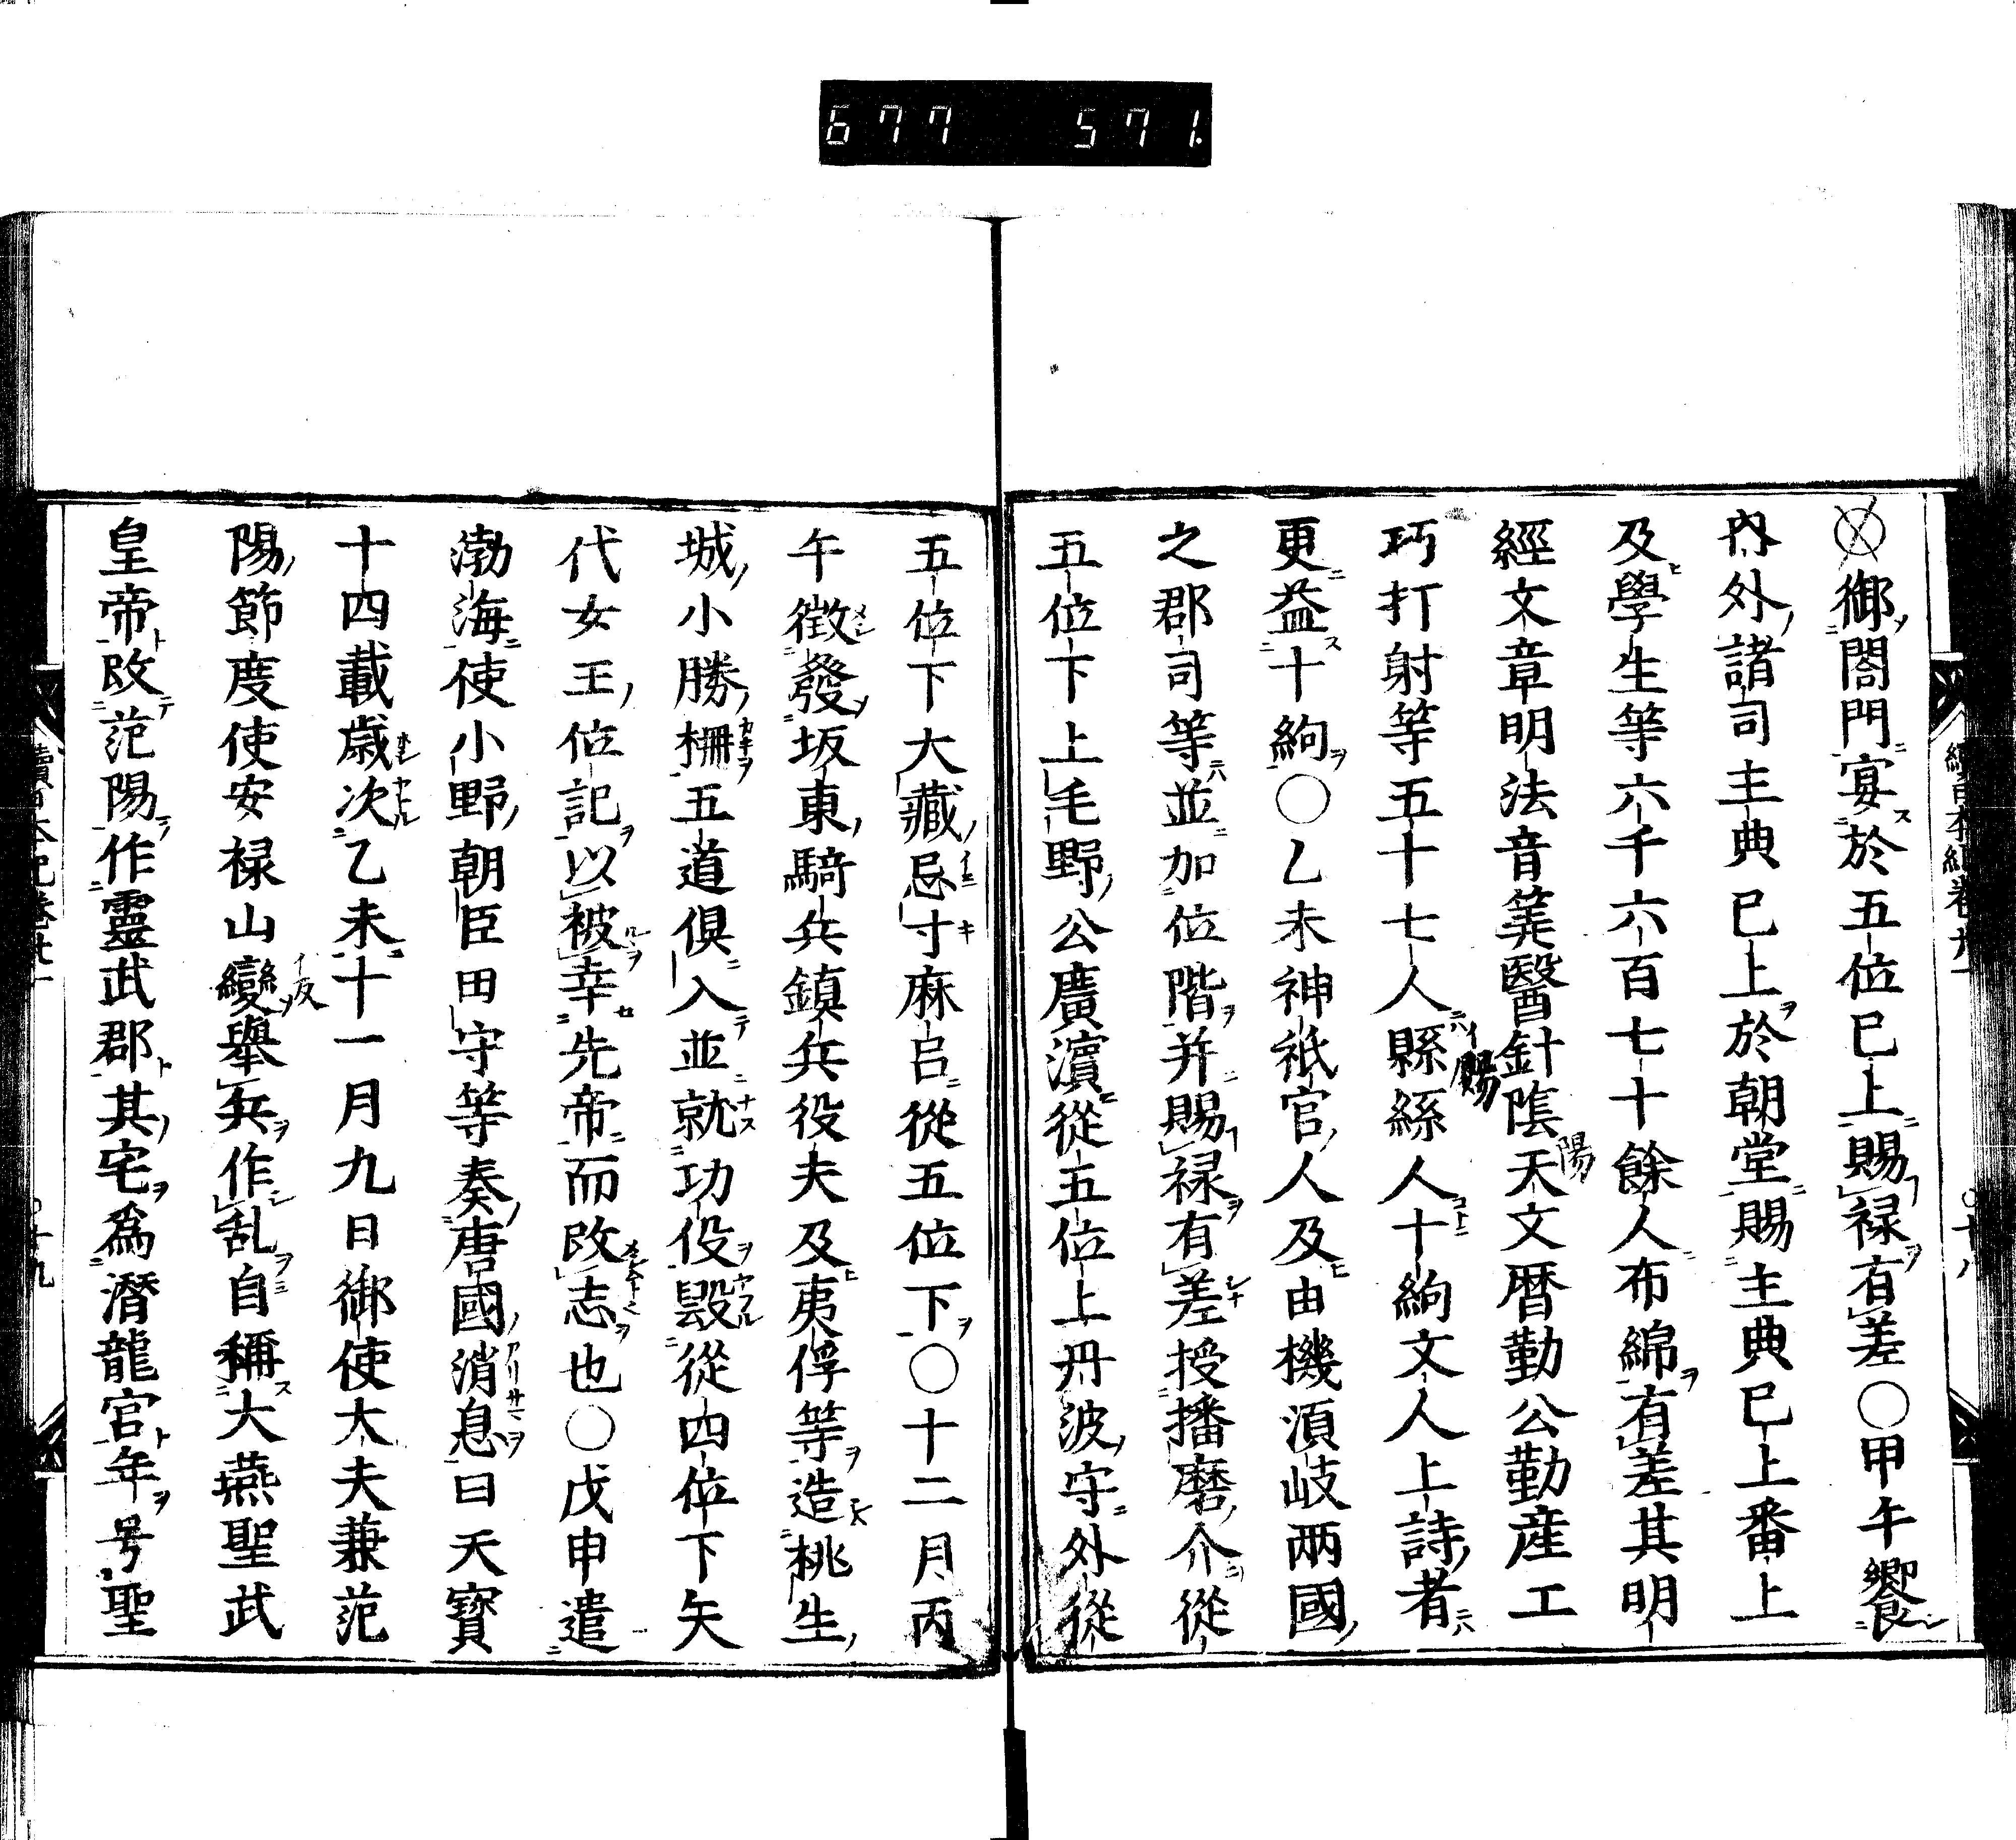 677 571.
御閤門宴於五位已上賜禄有差○甲午饗
內外諸司主典已上於朝堂賜主典已上番上
及學生等六千六百七十餘人布綿有差其明
經文章明法音筭醫針陰天文暦勤公勤産工
巧打射等五十七人縣絲人十絇文人上詩者
更益十絇○乙未神祇官人及由機湏岐兩國
之郡司等並加位階并賜禄有差授播磨介從
五位下上毛野公廣濵從五位上丹波守外從
五位下大藏忌寸麻呂從五位下○十二月丙
午徵發坂東騎兵鎮兵役夫及夷俘等造桃生
城小勝柵五道俱入並就功役毀從四位下矢
代女王位記以被幸先帝而改志也○戊申遣
渤海使小野朝臣田守等奏唐國消息曰天寳
十四載歳次乙未十一月九日御使大夫兼范
陽節度使安禄山變舉兵作乱自稱大燕聖武
皇帝改范陽作靈武郡其宅爲潛龍宮年号聖